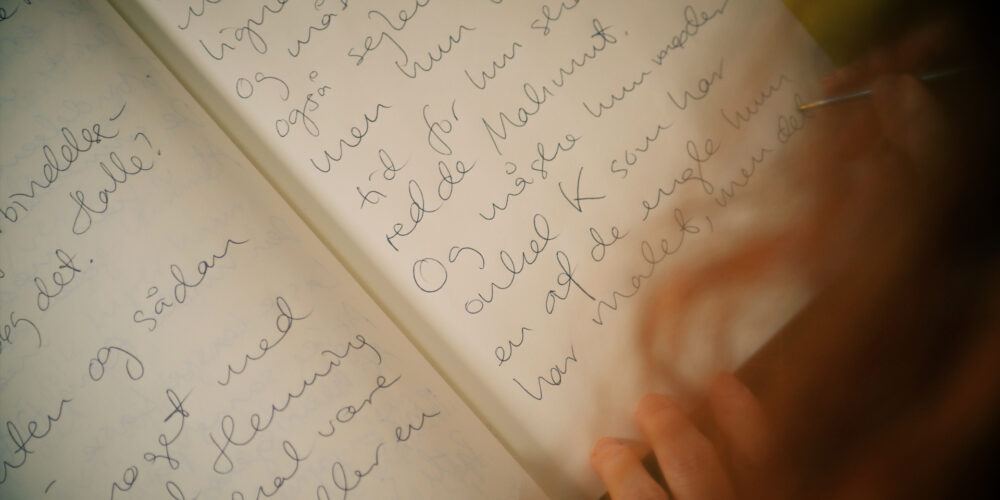 bindelse-
jeg det. Halle?
og sådan
noget med
Henning
skal være
eller en
ligne
og mås
også sejle
men hun
tid for hun
redde Malmut.
Og måske hun møder
onkel K som har
en af de engle hun
har malet, men det